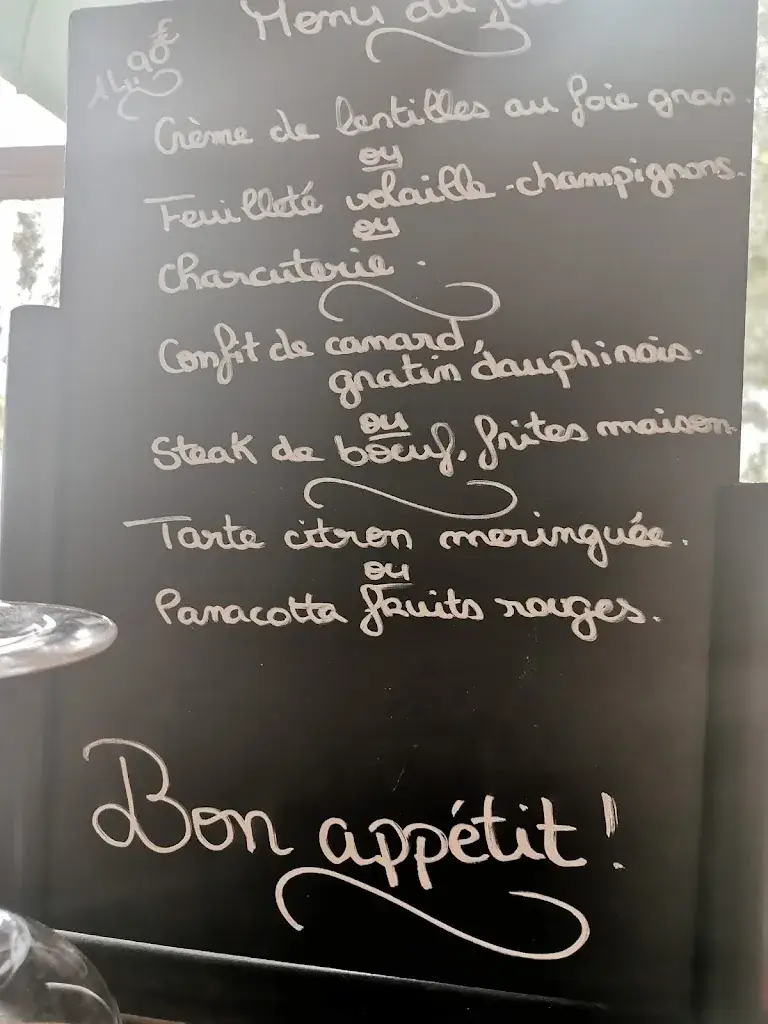 Menu du jour
14,90€
Crème de lentilles au foie gras.
ou
Feuilleté volaille-champignons.
ou
Charcuterie.
Confit de canard,
gratin dauphinois.
ou
Steak de bœuf, frites maison.
Tarte citron meringuée.
ou
Panacotta fruits rouges.
Bon appétit !